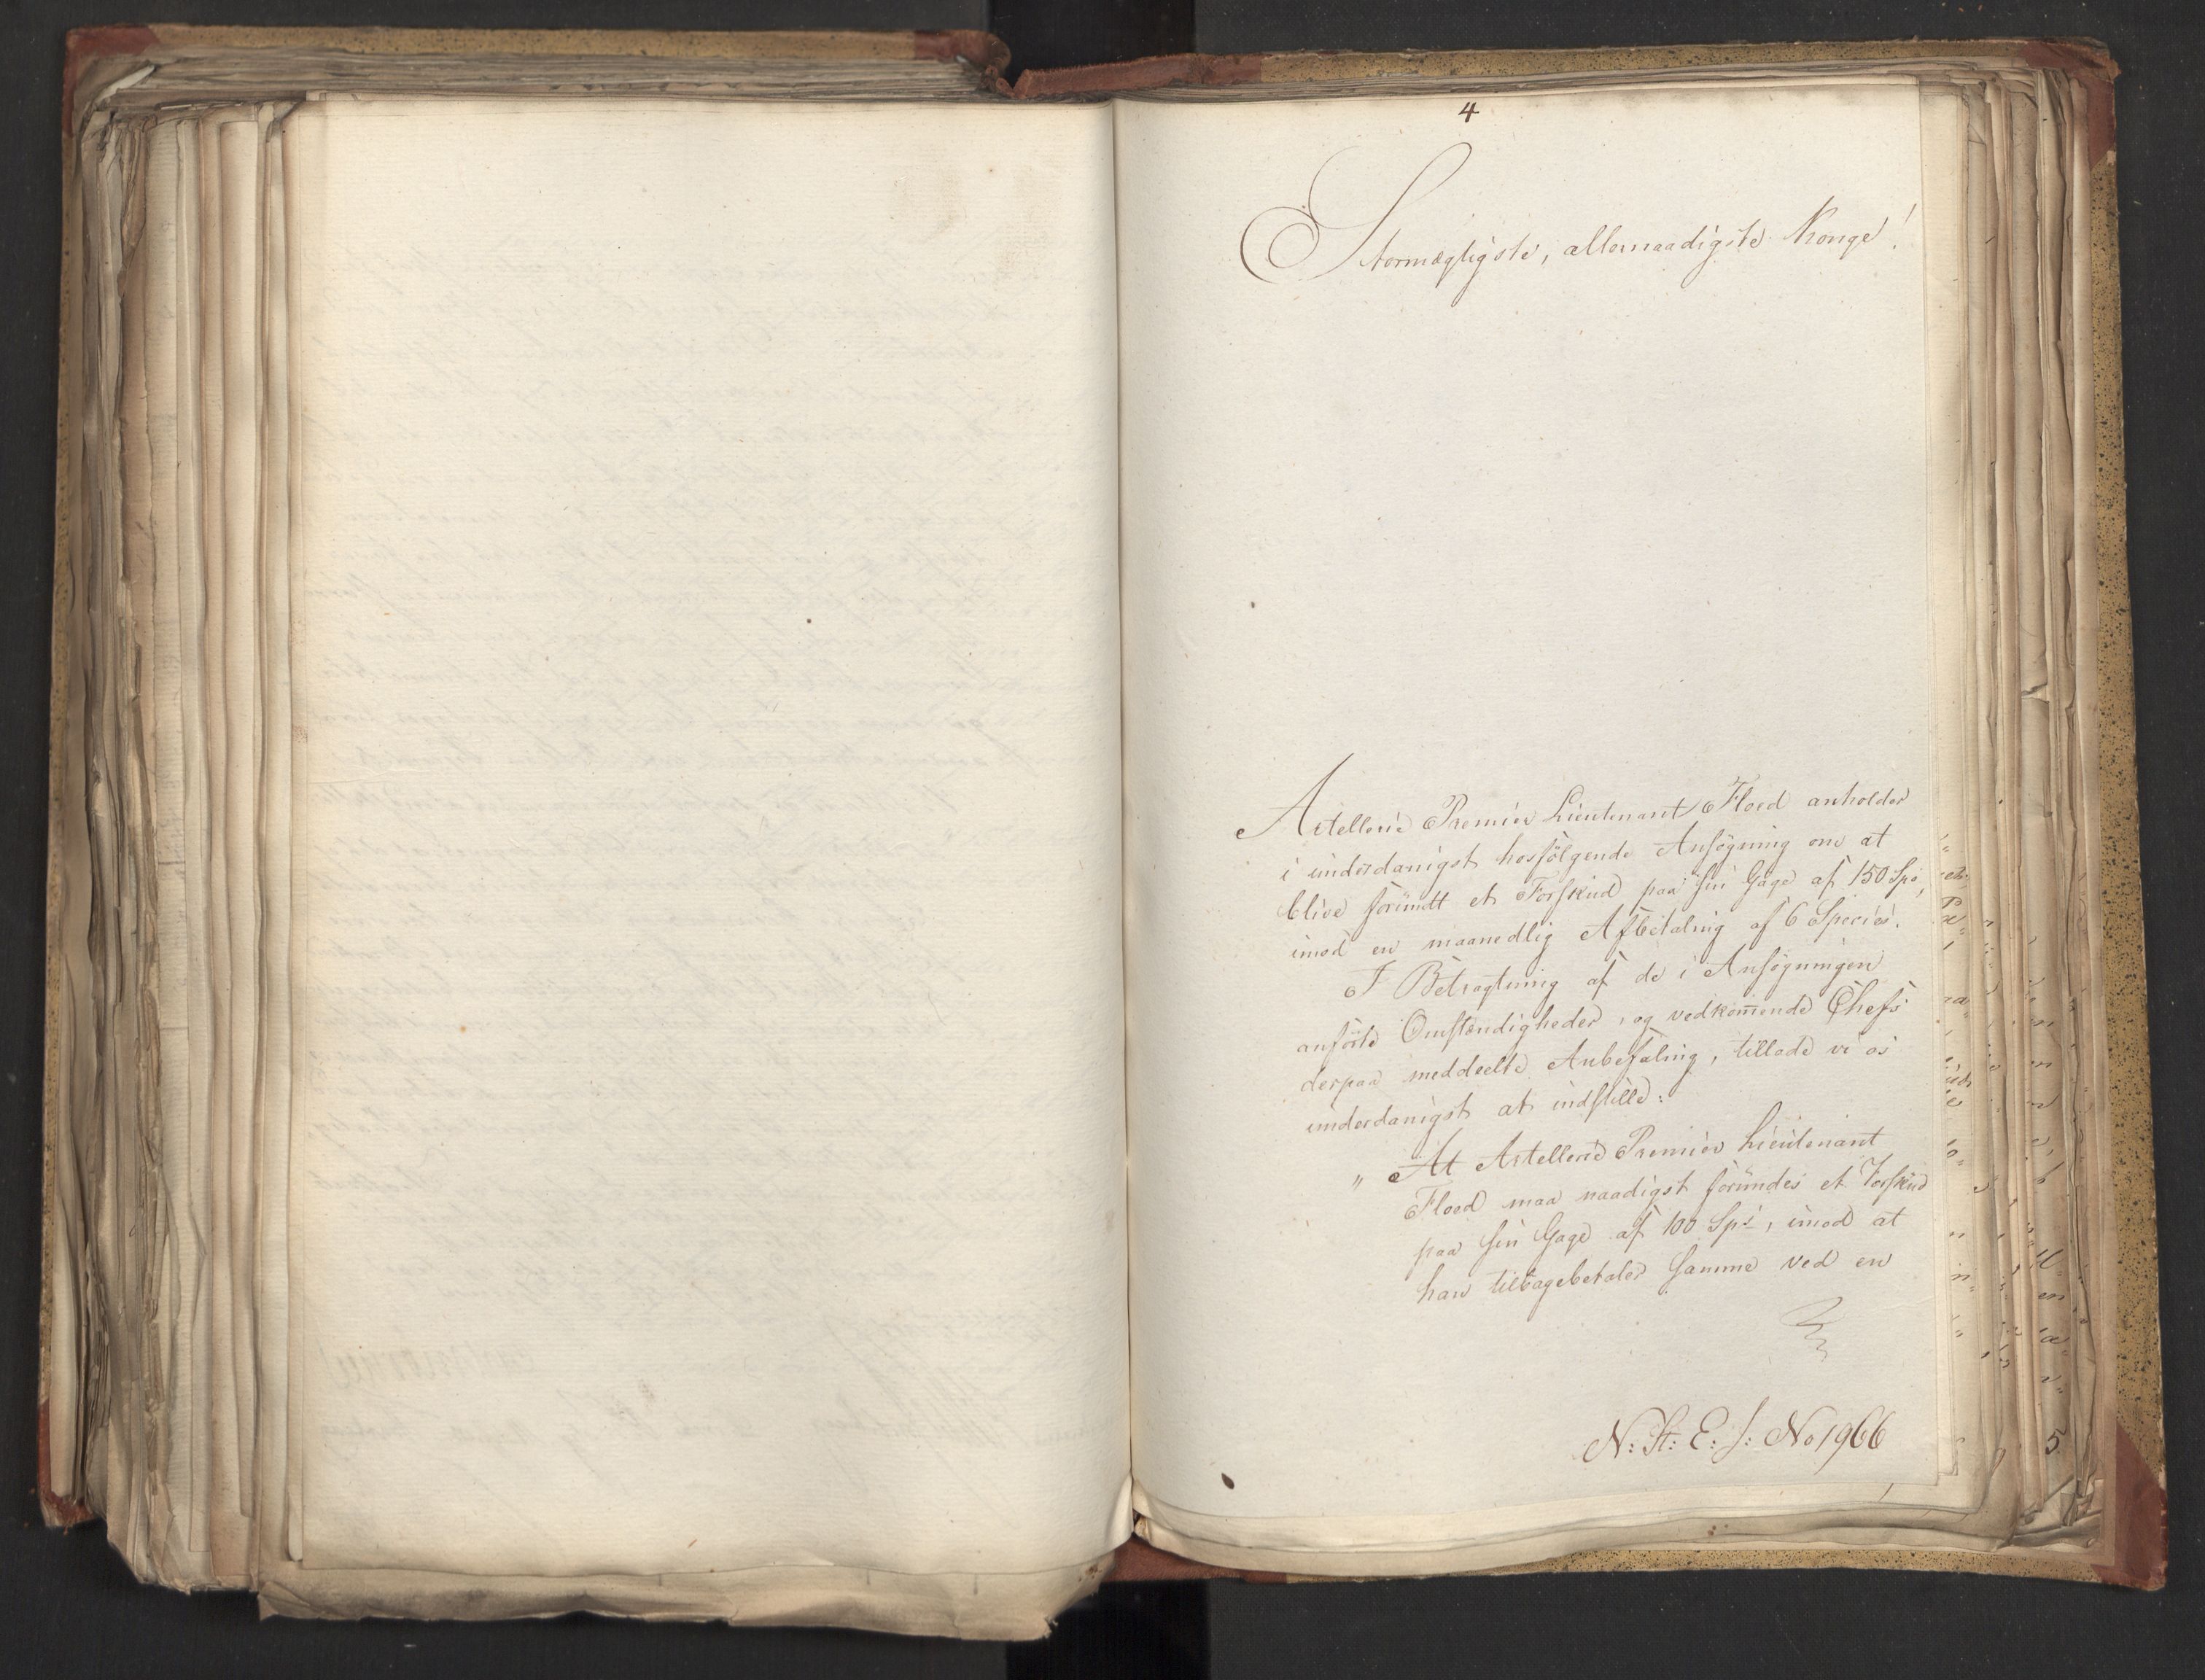 4
Stormægtigste, allernaadigste Konge!
Artellerie Premier Lieutenant Floed anholder
i underdanigst hosfölgende Ansögning om at
blive forundt et Forskud paa sin Gage af 150 Sps,
imod en maanedlig Afbetaling af 6 Species.
I Betragtning af de i Ansögningen
anförte Omstændigheder, og vedkom̅ende Chefs
derpaa meddeelte Anbefaling, tillade vi os
underdanigst at indstille:
" At Artellerie Premier Lieutenant
Floed maa naadigst forundes et Forskud
paa sin Gage af 100 Sps, imod at
han tilbagebetaler samme ved en
N: St: E: J: No 1966
5